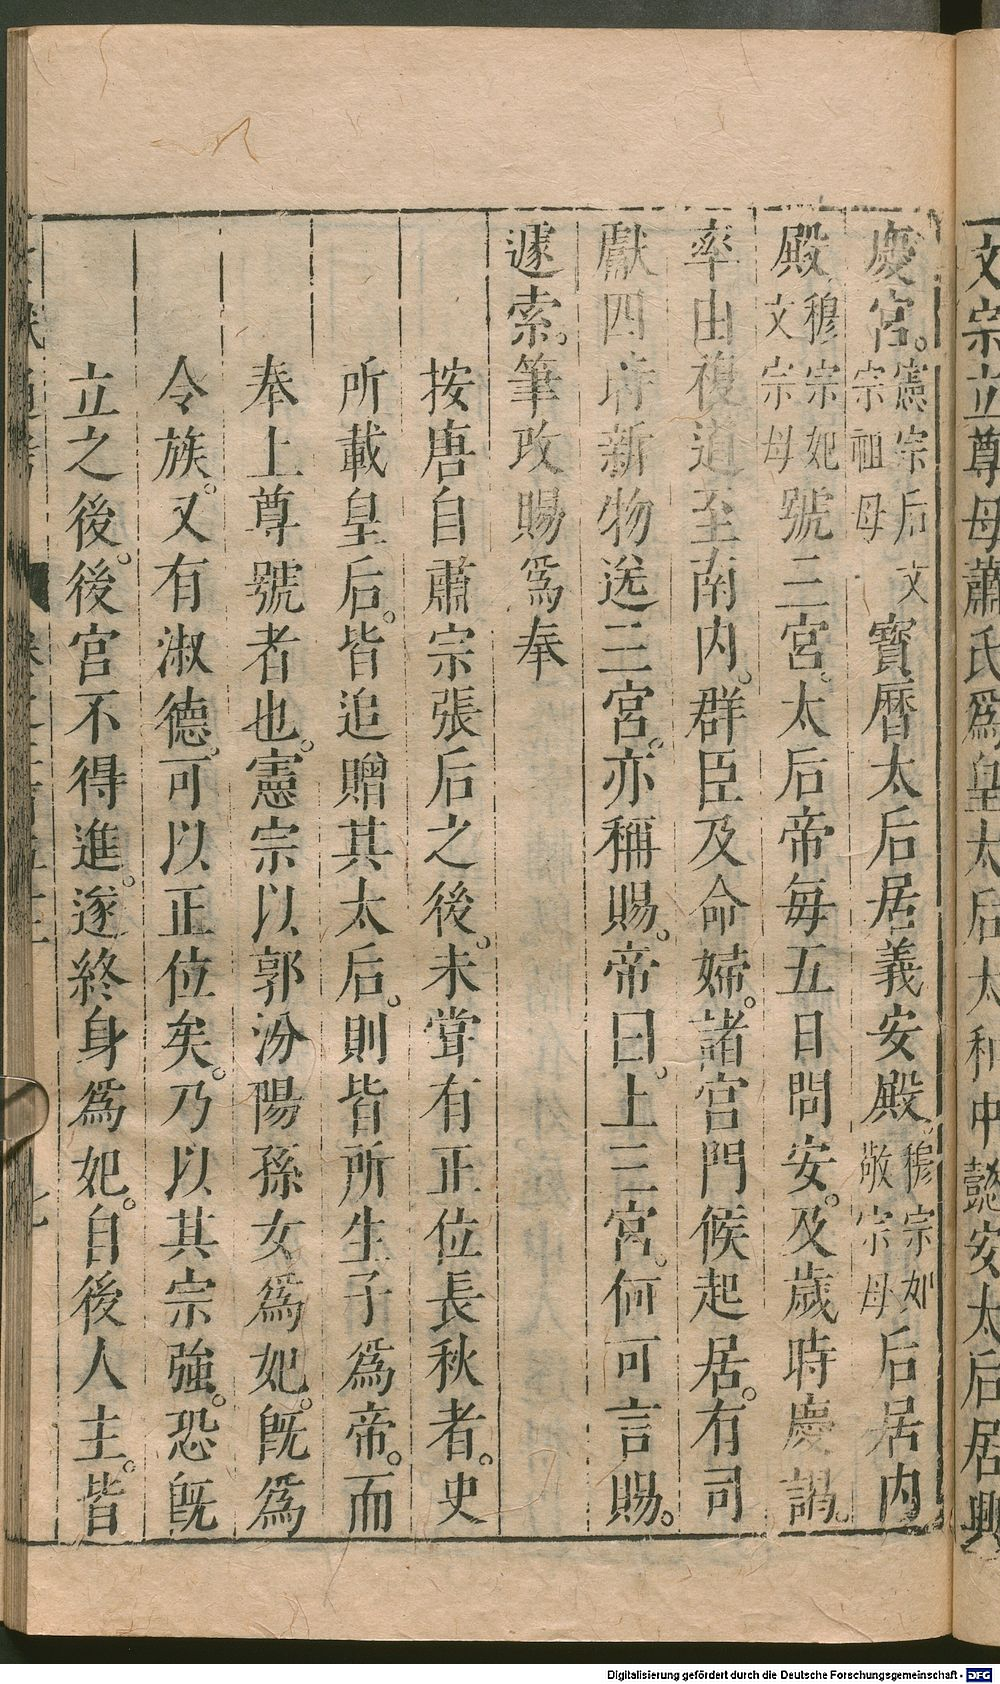 文宗立尊母蕭氏爲皇太后太和中懿安太后居興
慶宮。憲宗后文宗祖母寶曆太后居義安殿。穆宗妃敬宗母后居内
殿穆宗妃文宗母號三宮太后帝每五日問安。及歲時慶謁。
率由複道至南内。群臣及命婦。諸宫門候起居。有司
獻四時新物送三宮。亦稱賜。帝曰。上三宮。何可言賜。
遽索。筆改賜爲奉
按唐自肅宗張后之後。未嘗有正位長秋者。史
所載皇后。皆追贈其太后。則皆所生子爲帝。而
奉上尊號者也。憲宗以郭汾陽孫女爲妃。旣爲
令族。又有淑德。可以正位矣。乃以其宗強。恐旣
立之後。後宮不得進。遂終身爲妃。自後人主。皆
Digitalisierung gefördert durch die Deutsche Forschungsgemeinschaft - DFG